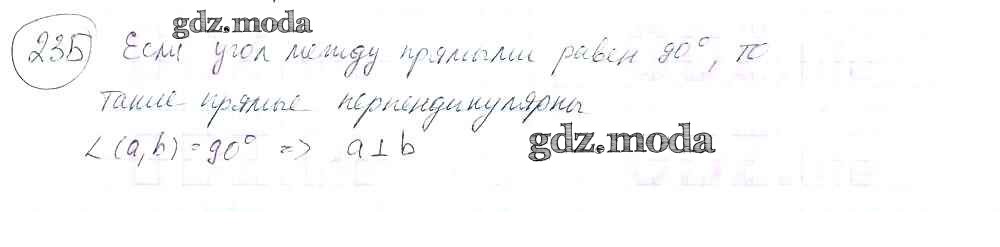 gdz.moda
235 Если угол между прямыми равен 90°, то
такие прямые перпендикулярны
∠(a,b)=90° => a⊥b
gdz.moda